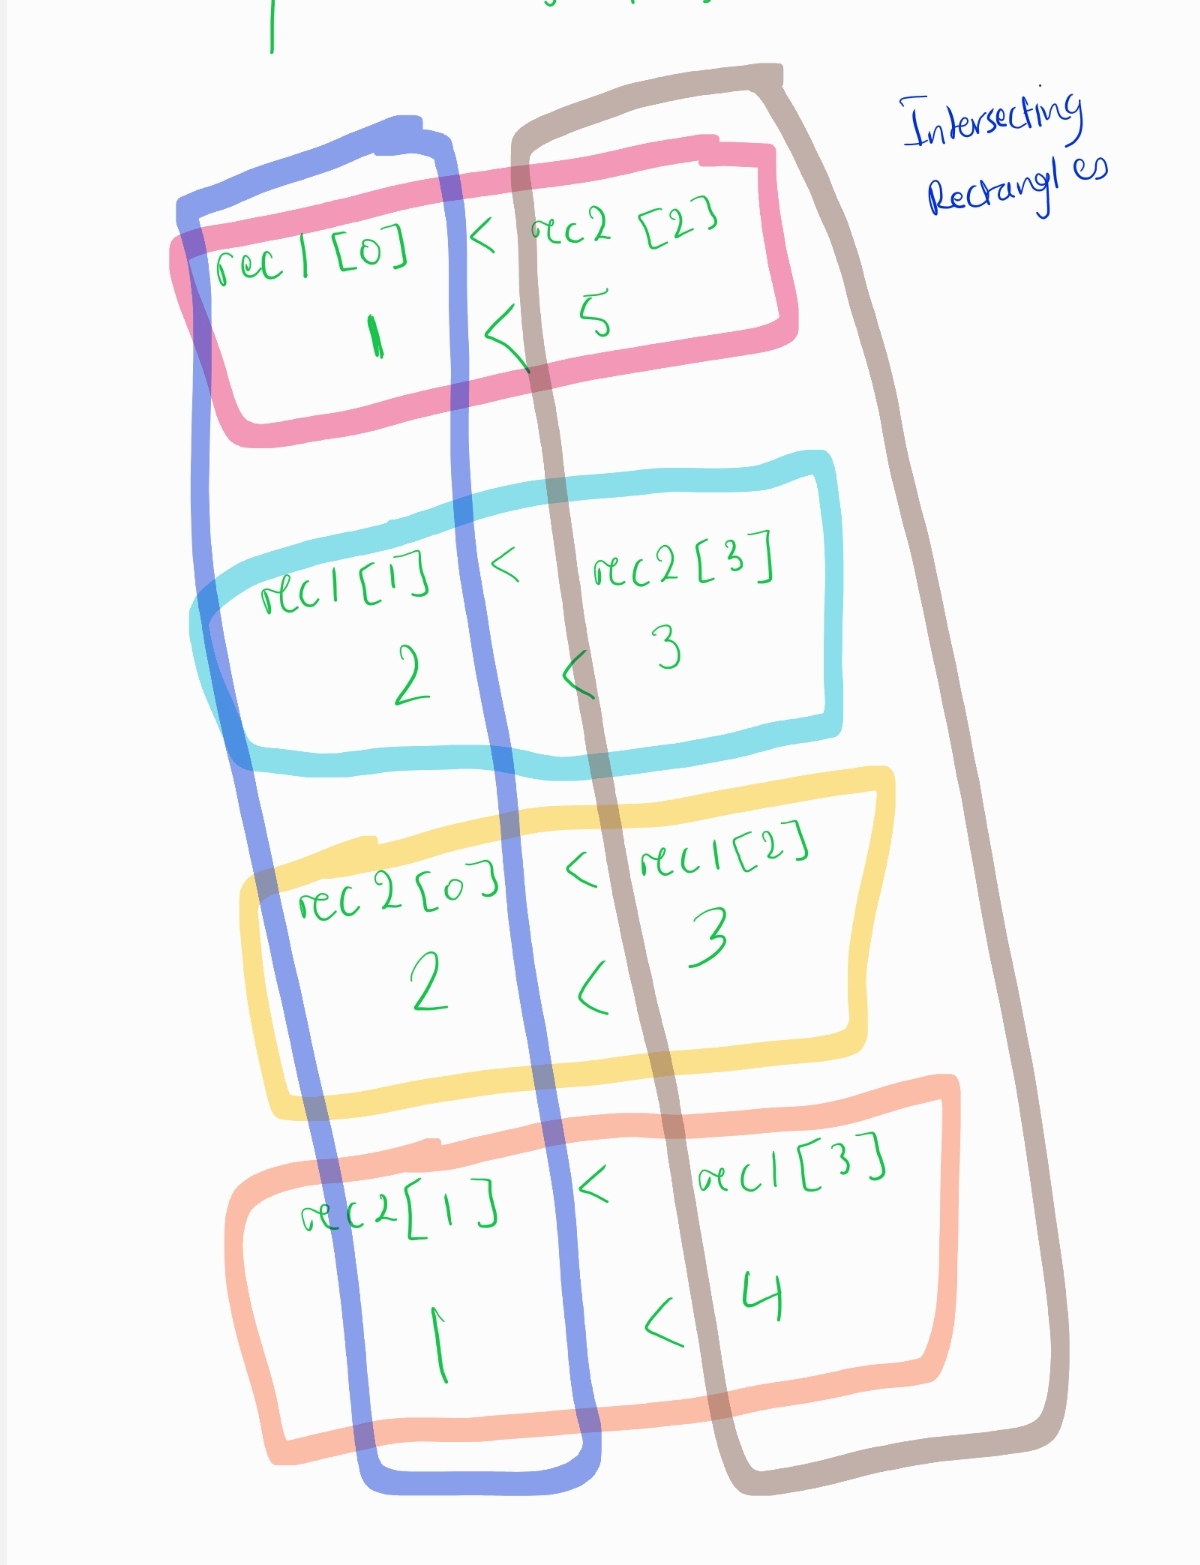 Intersecting
Rectangles
rec1[0] < rec2[2]
1 < 5
rec1[1] < rec2[3]
2 < 3
rec2[0] < rec1[2]
2 < 3
rec2[1] < rec1[3]
1 < 4